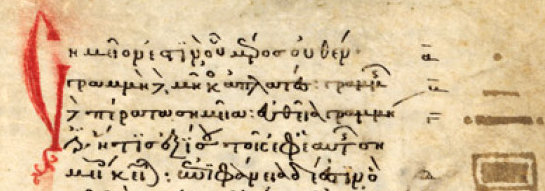 Σημεῖόν ἐστιν οὗ μέρος οὐθέν·
γραμμὴ δὲ μῆκος ἀπλατές: γραμμῆς
δὲ πέρατα σημεῖα: εὐθεῖα γραμμή
ἐστιν ἥτις ἐξ ἴσου τοῖς ἐφ' ἑαυτῆς ση
μείοις κεῖται: ἐπιφάνεια δέ ἐστιν ὃ